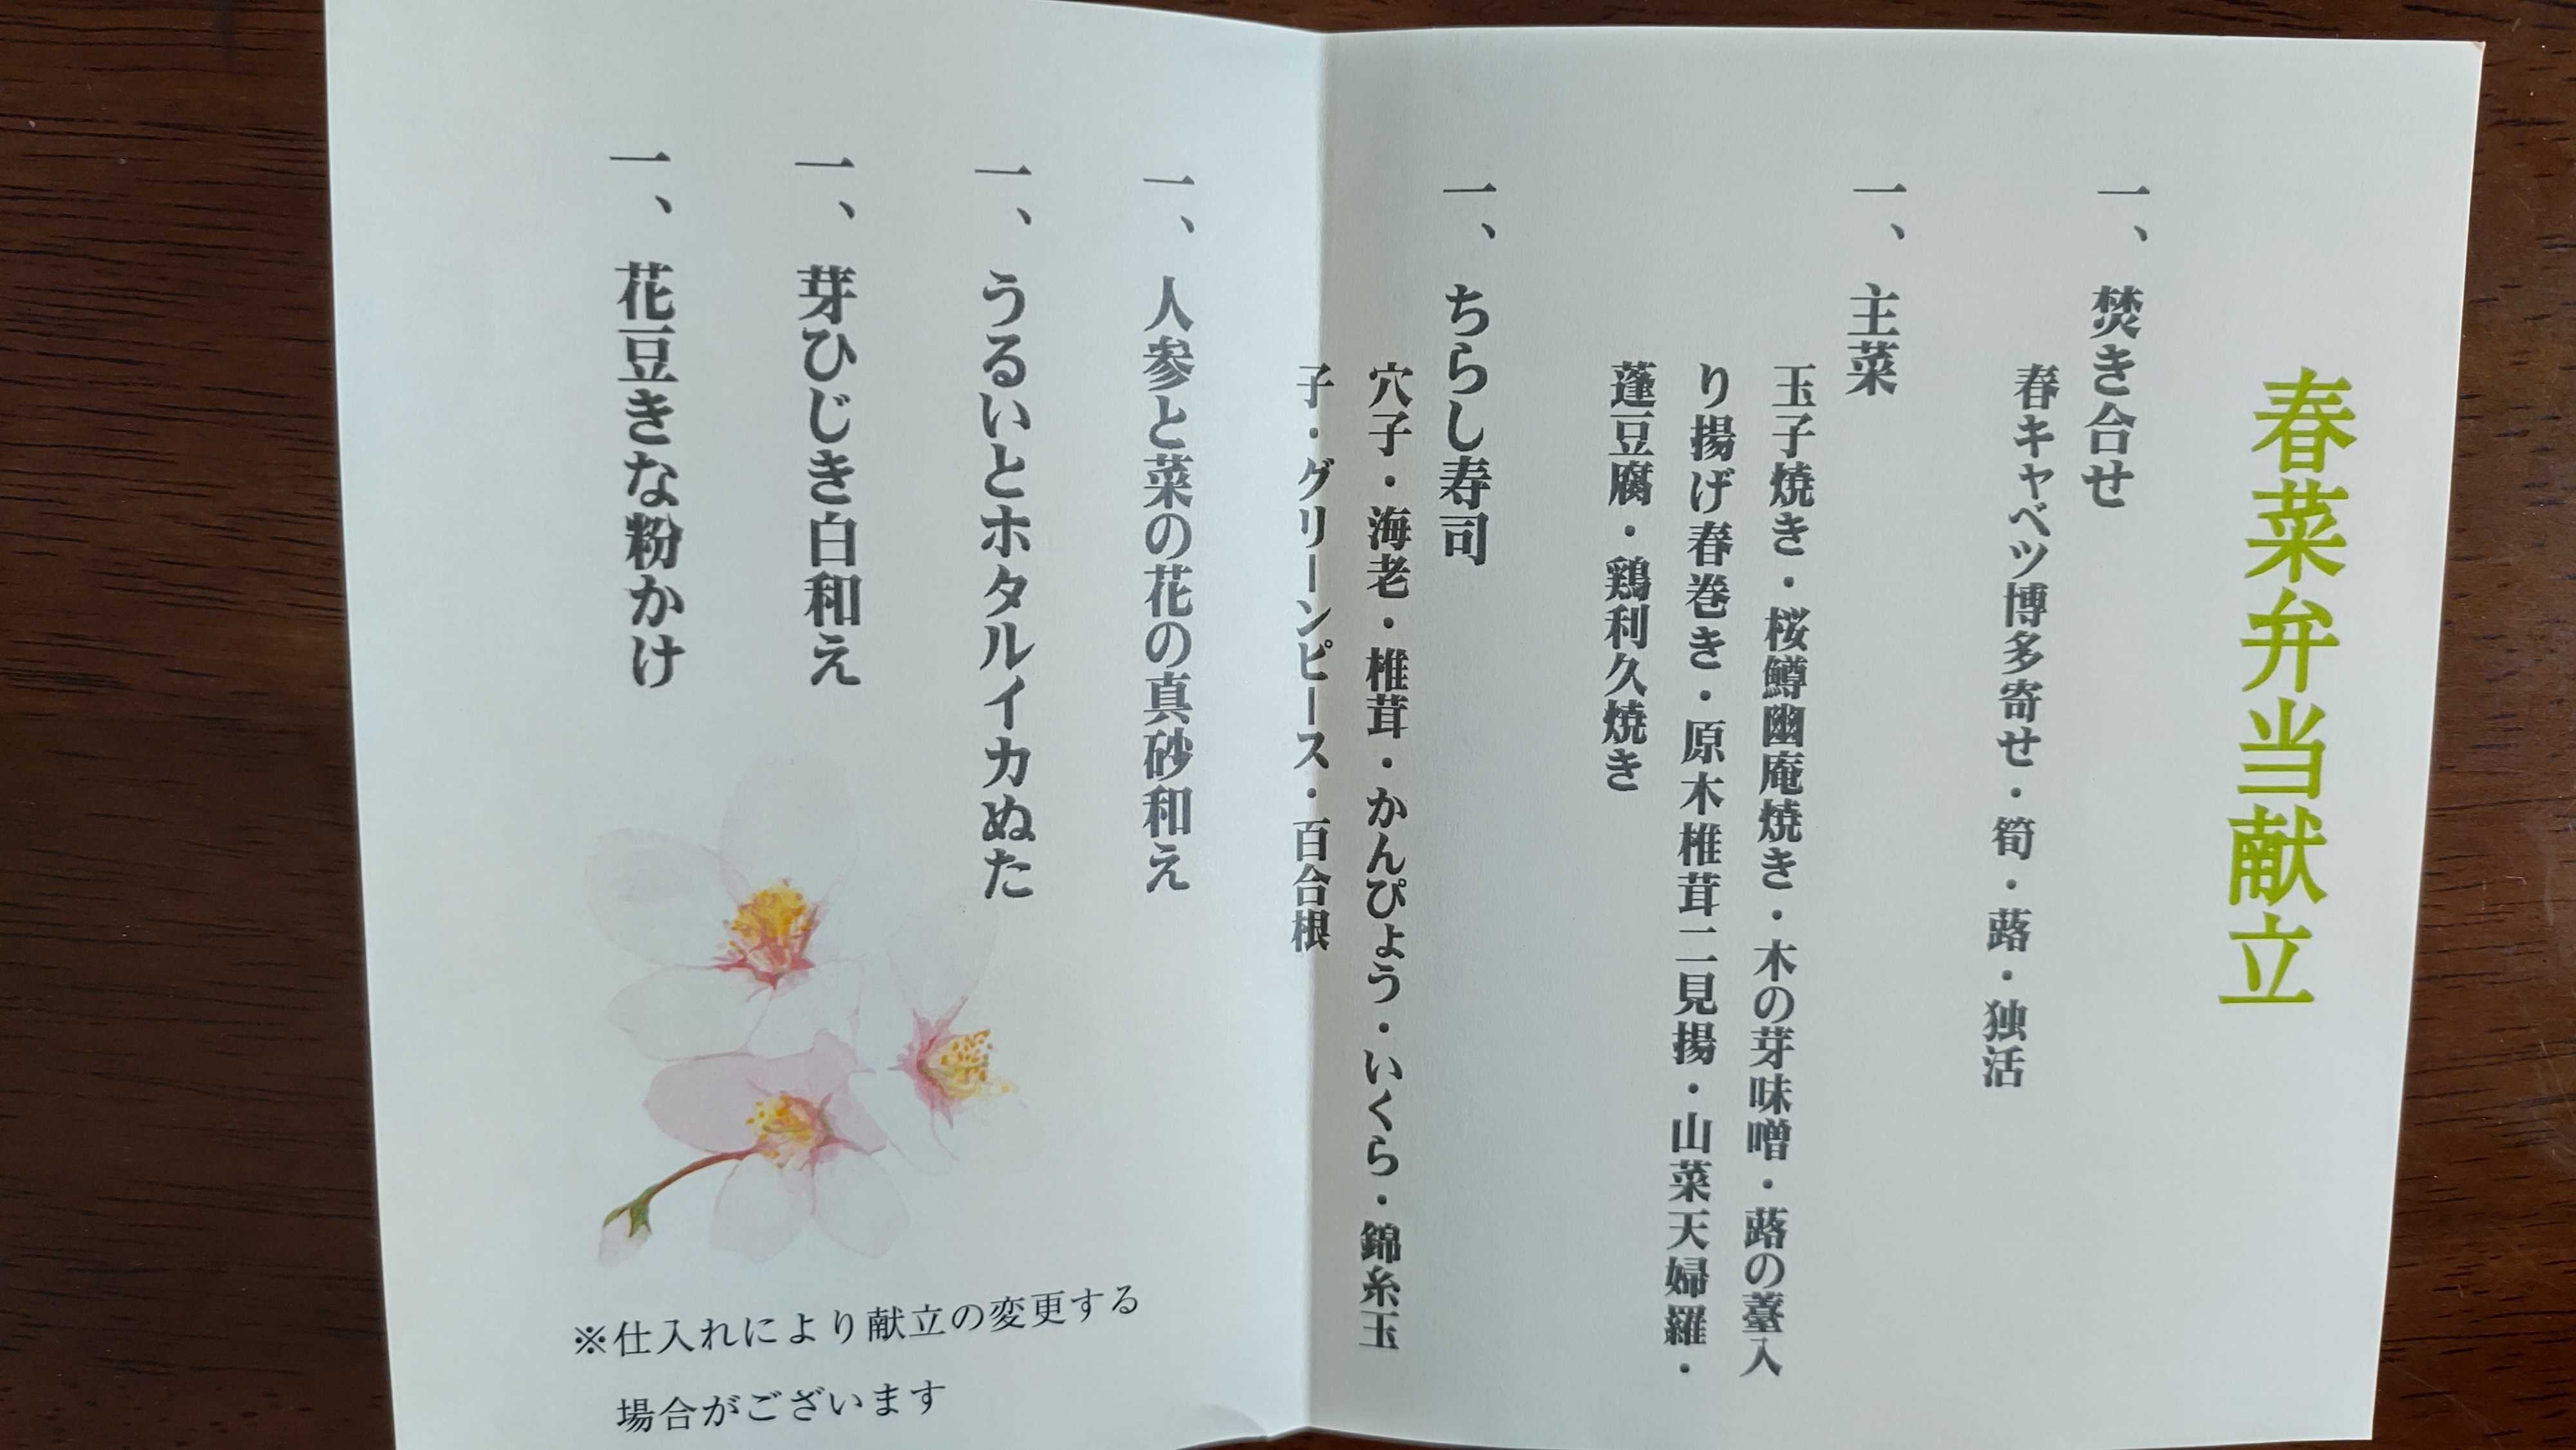 春菜弁当献立
一、焚き合せ
春キャベツ博多寄せ・筍・蕗・独活
一、主菜
玉子焼き・桜鱒幽庵焼き・木の芽味噌・蕗の薹入
り揚げ春巻き・原木椎茸二見揚・山菜天婦羅・
蓬豆腐・鶏利久焼き
一、ちらし寿司
穴子・海老・椎茸・かんぴょう・いくら・錦糸玉
子・グリーンピース・百合根
一、人参と菜の花の真砂和え
一、うるいとホタルイカぬた
一、芽ひじき白和え
一、花豆きな粉かけ
※仕入れにより献立の変更する
場合がございます